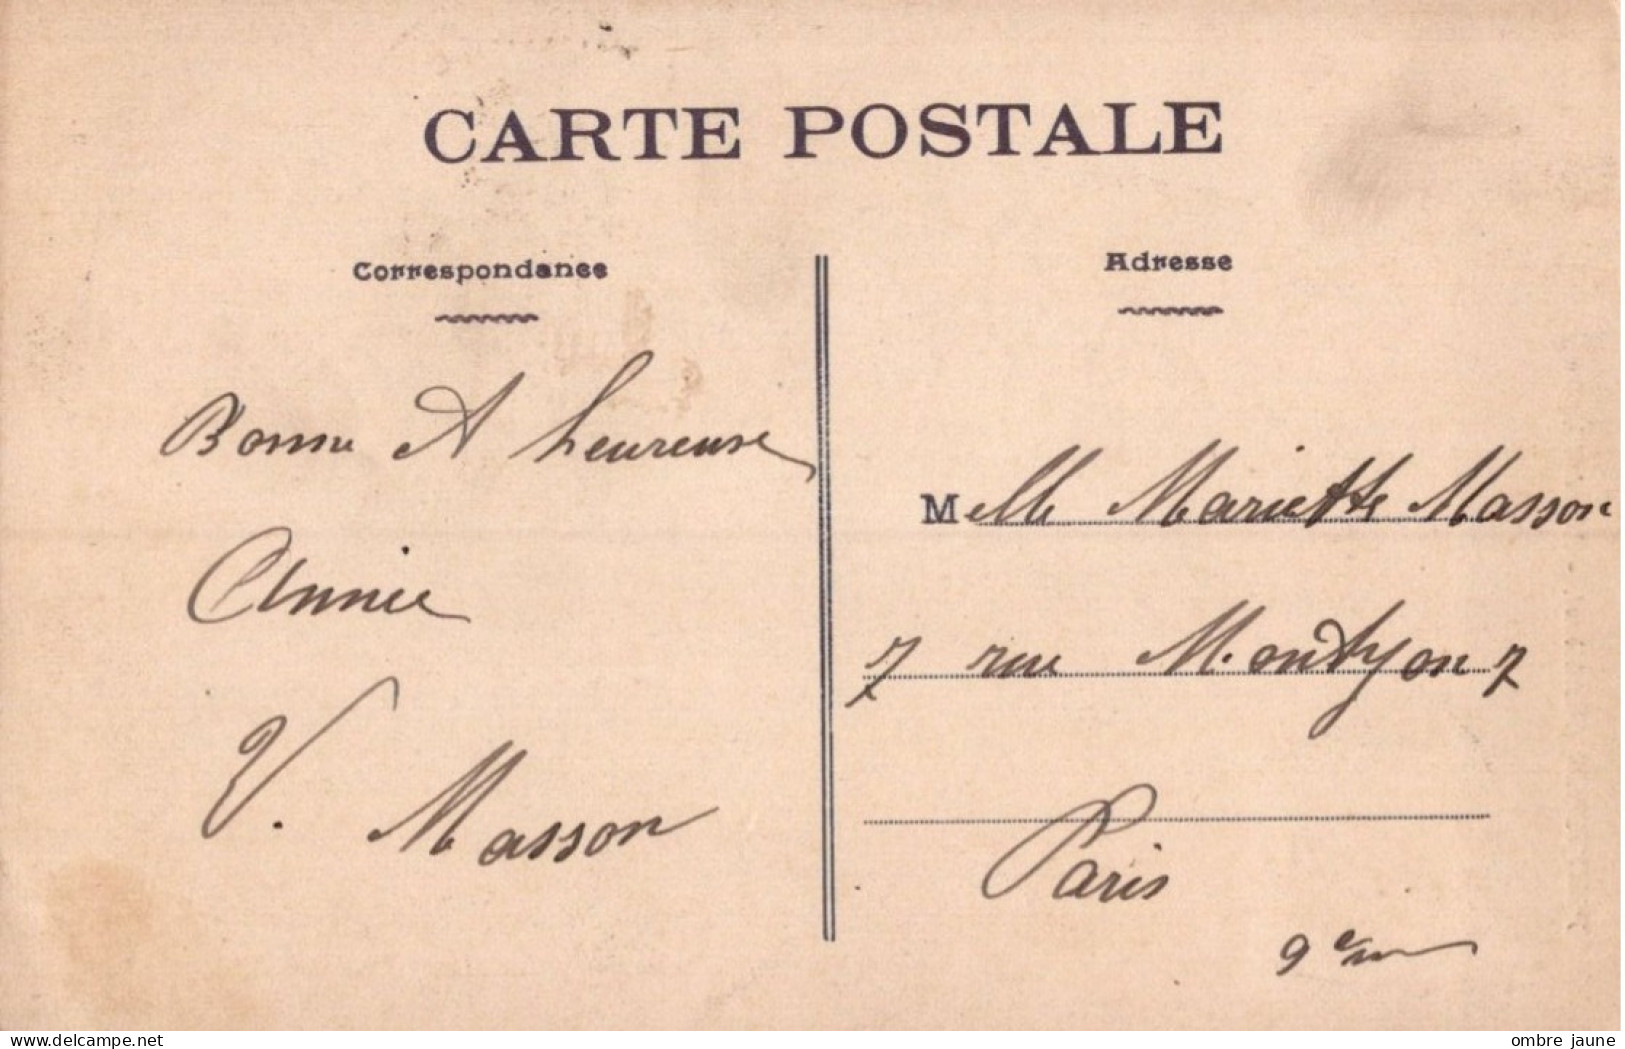 CARTE POSTALE
Correspondance
Adresse
Bonne & heureuse
Année
V. Masson
Melle Mariette Masson
7 rue Montyon 7
Paris
9eme
delcampe.net
ombre jaune